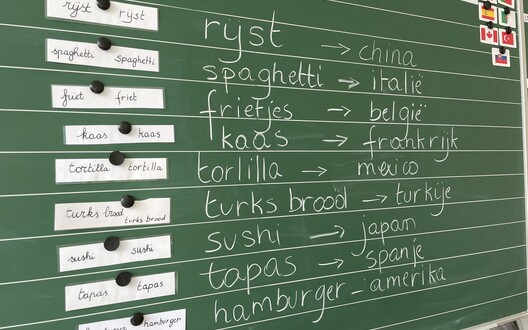 rijst rijst
rijst → china
spaghetti spaghetti
spaghetti → italië
friet friet
frietjes → belgië
kaas kaas
kaas → frankrijk
tortilla tortilla
torlilla → mexico
turks brood turks brood
turks broodd → turkije
sushi sushi
sushi → japan
tapas tapas
tapas → spanje
hamburger
hamburger – amerika